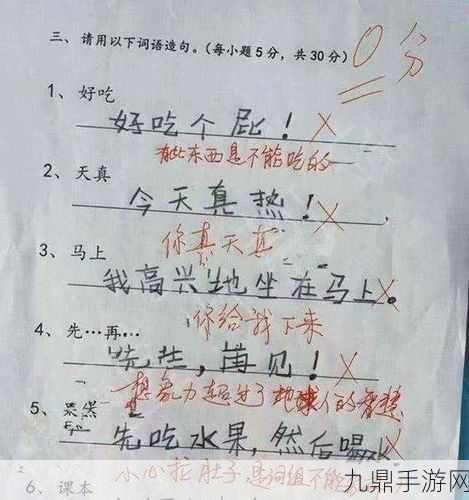 三、请用以下词语造句。（每小题5分，共30分） 0分
1、好吃
好吃个屁！
有些东西是不能吃的
2、天真
今天真热！
你真天真
3、马上
我高兴地坐在马上。
你给我下来
4、先…再…
先生，再见！
想象力超过了地球人的智慧
5、果然
先吃水果，然后喝水
小心拉肚子，是词组不能
6、课本
九鼎手游网